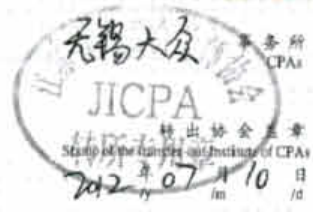 无锡大众 事务所
CPAs
JICPA
转所专用章
转出协会盖章
Stamp of the transfer-out Institute of CPAs
2012 年 07 月 10 日
/y /m /d